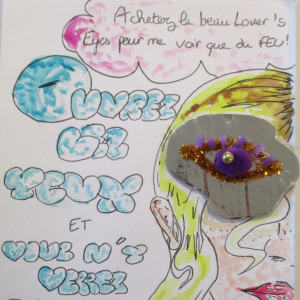 Achetez le beau Lover's
Eyes pour ne voir que du FEU!
OUVREZ
LES
YEUX
ET
VOUS N'Y
VERREZ